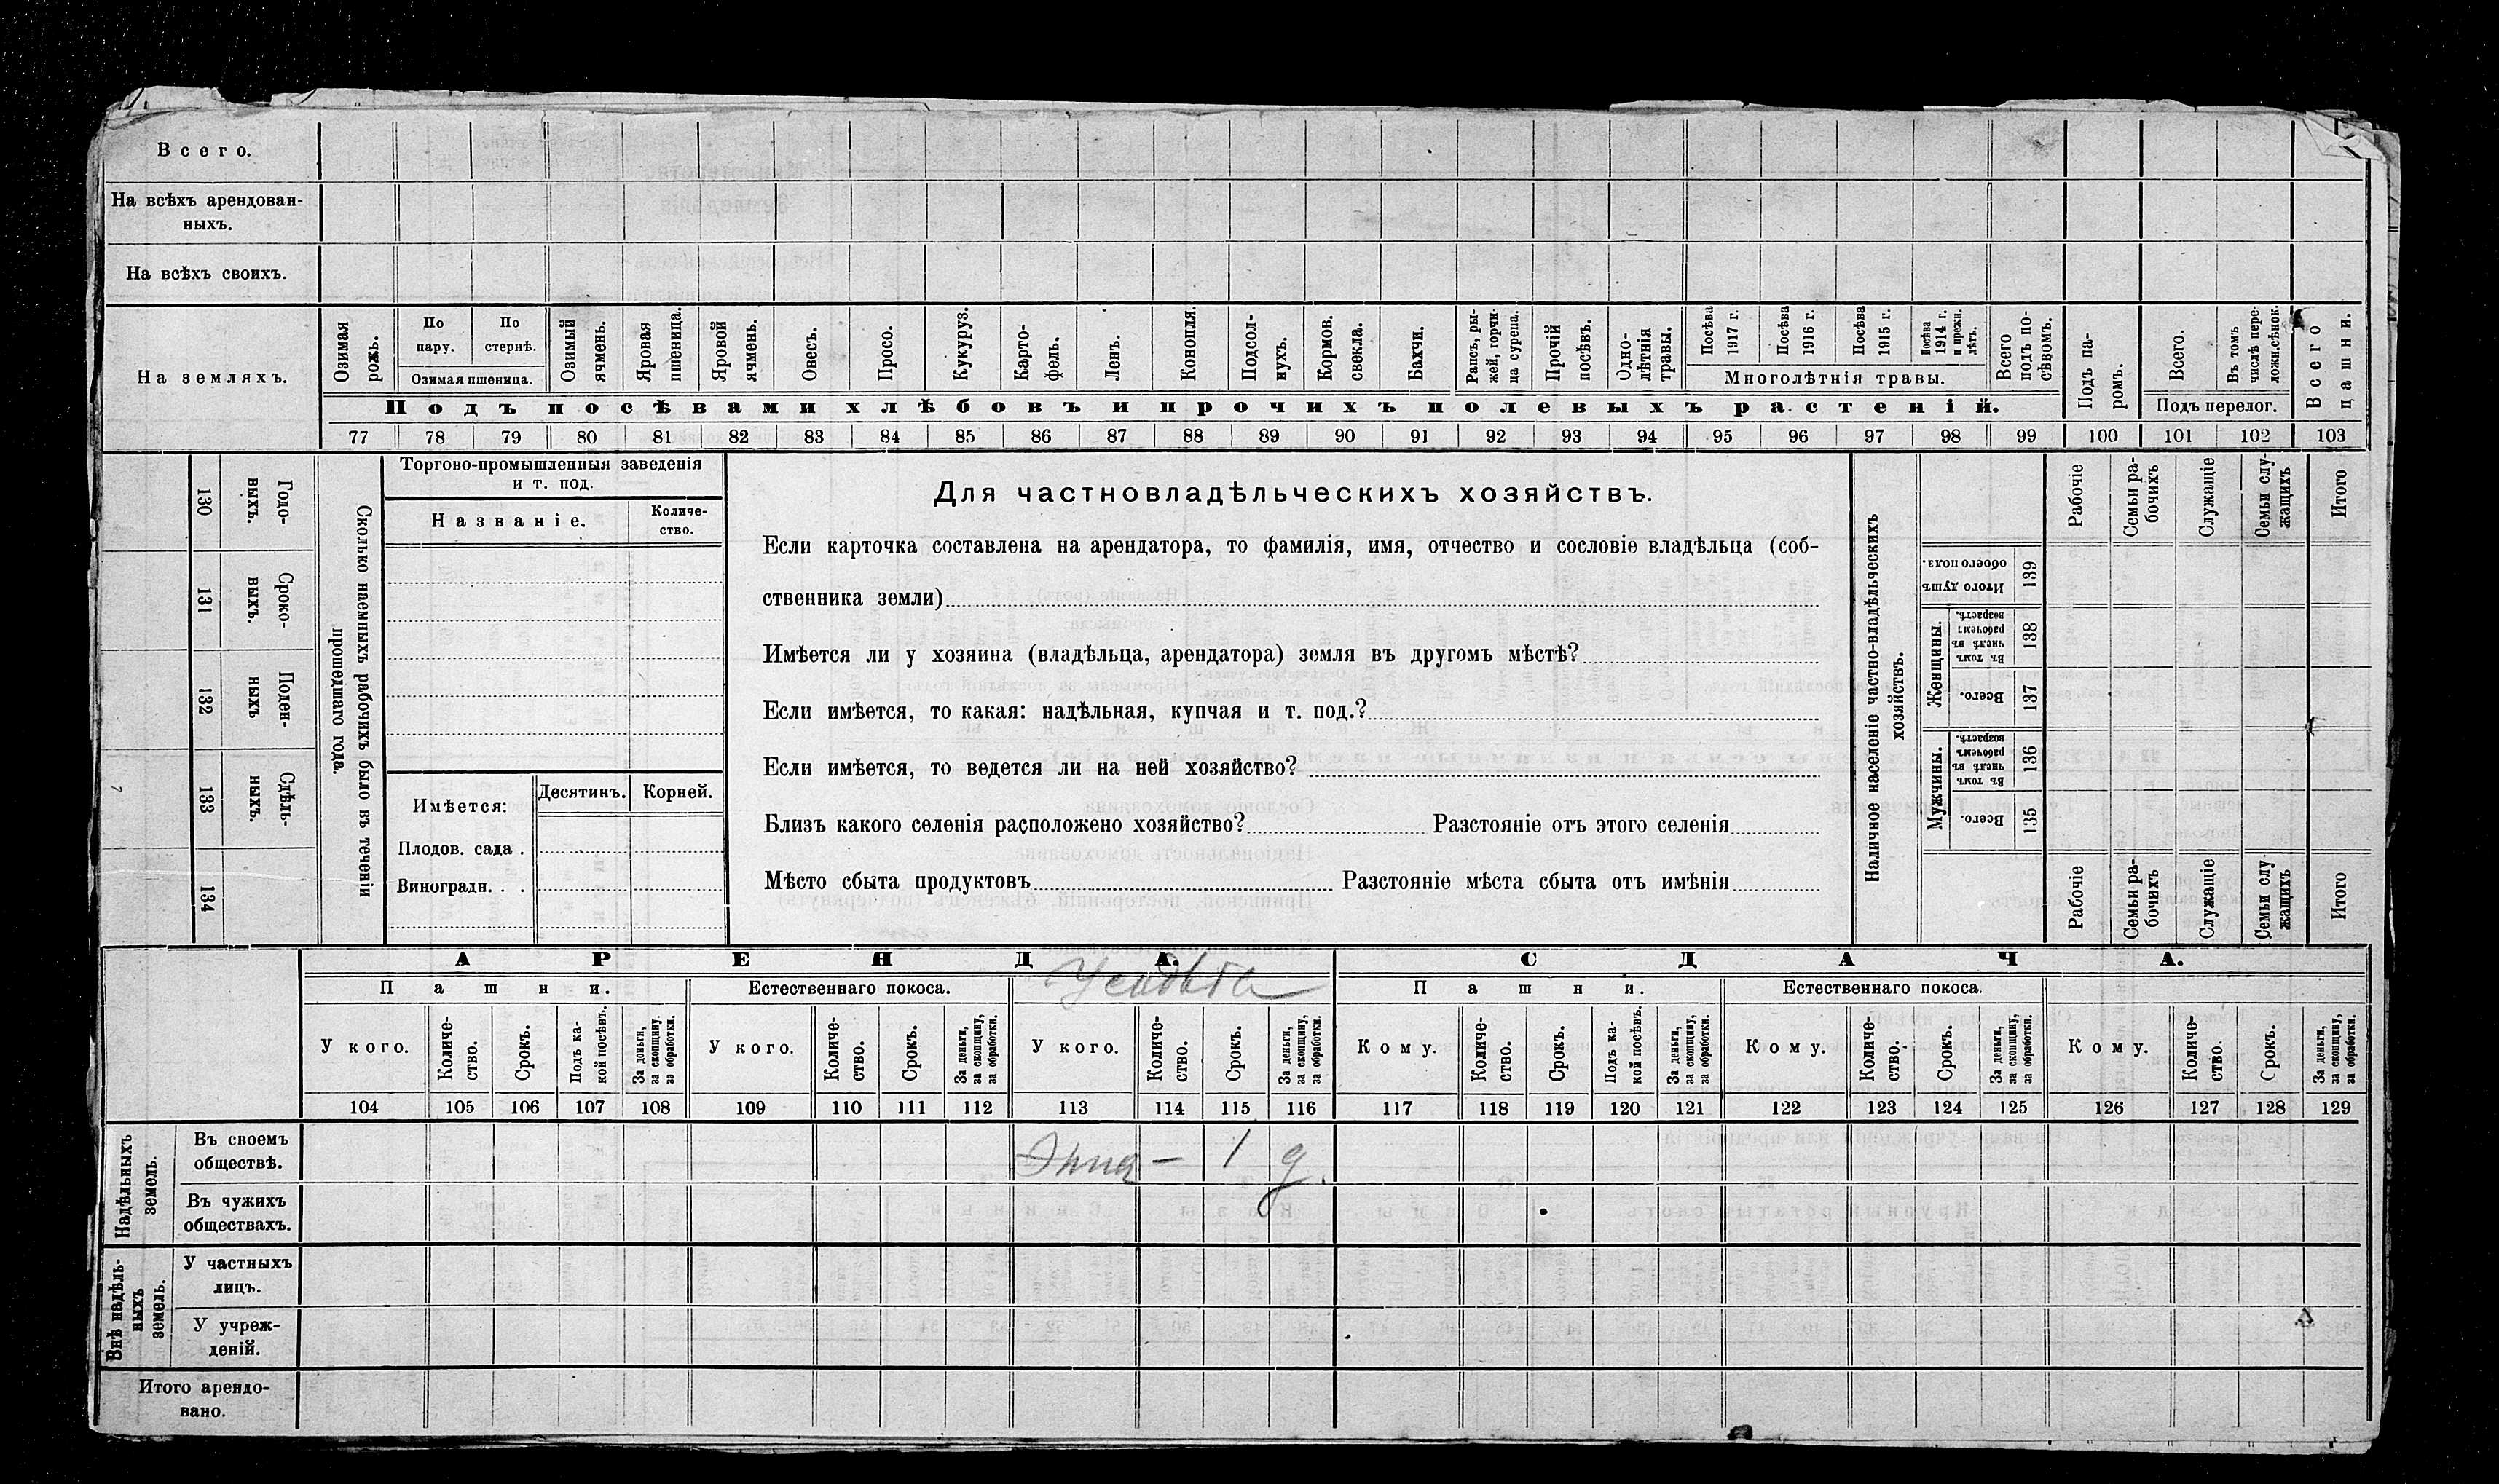 Всего.
На всѣхъ арендован-
ныхъ.
На всѣхъ своихъ.
На земляхъ.
Озимая рожь.
По пару.
По стернѣ.
Озимая пшеница.
Озимый ячмень.
Яровая пшеница.
Яровой ячмень.
Овесъ.
Просо.
Кукуруз.
Карто-
фель.
Ленъ.
Конопля.
Подсол-
нухъ.
Кормов. свекла.
Бахчи.
Рапсъ, ры-
жей, горчи-
ца сурепа.
Прочій посѣвъ.
Одно-
лѣтнія травы.
Посѣва 1917 г.
Посѣва 1916 г.
Посѣва 1915 г.
Посѣва 1914 г. и прежн. лѣтъ.
Многолѣтнія травы.
Всего подъ по-
сѣвомъ.
Подъ посѣвами хлѣбовъ и прочихъ полевыхъ растеній.
Подъ па-
ромъ.
Всего.
Въ томъ числѣ пере-
ложн.сѣнок.
Подъ перелог.
Всего пашни.
77 78 79 80 81 82 83 84 85 86 87 88 89 90 91 92 93 94 95 96 97 98 99 100 101 102 103
130 Годо-
выхъ.
131 Сроко-
выхъ.
132 Поден-
ныхъ
133 Сдѣль-
ныхъ.
134
Сколько наемныхъ рабочихъ было въ теченіи
прошедшаго года.
Торгово-промышленныя заведенія
и т. под.
Названіе.
Количе-
ство.
Имѣется:
Десятинъ.
Корней.
Плодов. сада .
Виноградн. . .
Для частновладѣльческихъ хозяйствъ.
Если карточка составлена на арендатора, то фамилія, имя, отчество и сословіе владѣльца (соб-
ственника земли)
Имѣется ли у хозяина (владѣльца, арендатора) земля въ другомъ мѣстѣ?
Если имѣется, то какая: надѣльная, купчая и т. под.?
Если имѣется, то ведется ли на ней хозяйство?
Близъ какого селенія расположено хозяйство? Разстояніе отъ этого селенія
Мѣсто сбыта продуктовъ Разстояніе мѣста сбыта отъ имѣнія
Наличное населеніе частно-владѣльческихъ
хозяйствъ.
Рабочіе
Семьи ра-
бочихъ
Служащіе
Семьи слу-
жащихъ
Итого
Итого душъ обоего пола. 139
Женщины.
Въ томъ числѣ въ рабочемъ возрастѣ. 138
Всего. 137
Мужчины.
Въ томъ числѣ въ рабочемъ возрастѣ. 136
Всего. 135
Рабочіе
Семьи ра-
бочихъ
Служащіе
Семьи слу
жащихъ
Итого
АРЕНДА.
СДАЧА.
Пашни.
Естественнаго покоса.
Усадьба
Пашни.
Естественнаго покоса.
У кого.
Количе-
ство.
Срокъ.
Подъ ка-
кой посѣвъ.
За деньги, за скопщину, за обработки.
У кого.
Количе-
ство.
Срокъ.
За деньги, за скопщину, за обработки.
У кого.
Количе-
ство.
Срокъ.
За деньги, за скопщину, за обработки.
Кому.
Количе-
ство.
Срокъ.
Подъ ка-
кой посѣвъ.
За деньги, за скопщину, за обработки.
Кому.
Количе-
ство.
Срокъ.
За деньги, за скопщину, за обработки.
Кому.
Количе-
ство.
Срокъ.
За деньги, за скопщину, за обработки.
104 105 106 107 108 109 110 111 112 113 114 115 116 117 118 119 120 121 122 123 124 125 126 127 128 129
Надѣльныхъ земель.
Въ своемъ
обществѣ.
— 1 д.
Въ чужихъ
обществахъ.
Внѣ надѣль-
ныхъ земель.
У частныхъ
лицъ.
У учреж-
деній.
Итого арендо-
вано.